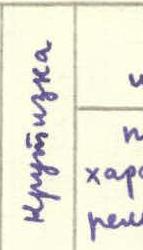 Крутизка
и
п
хара
рель